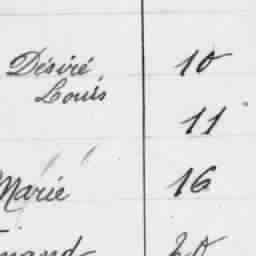 Désiré 10
Louis
11
Marie 16
20